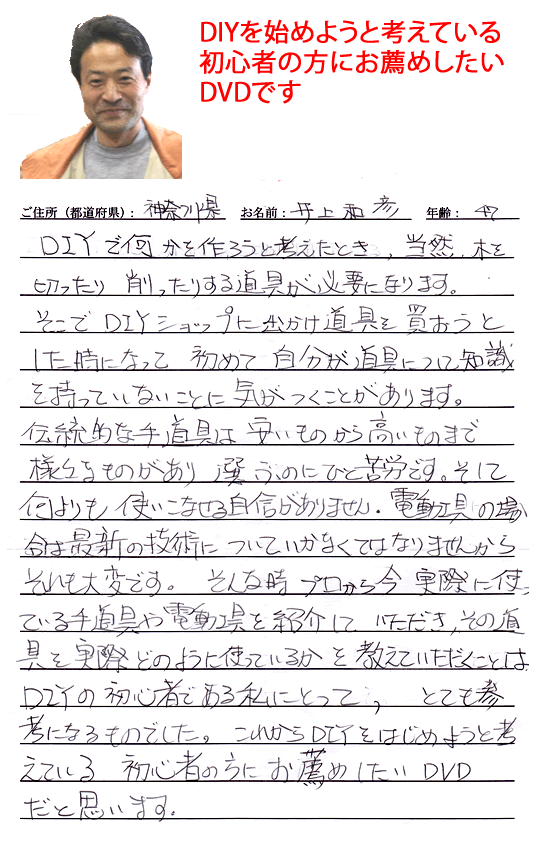 DIYを始めようと考えている
初心者の方にお薦めしたい
DVDです
ご住所（都道府県）： 神奈川県 お名前： 井上和彦 年齢： 47
DIYで何かを作ろうと考えたとき，当然，木を
切ったり 削ったりする道具が必要になります。
そこでDIYショップに出かけ道具を買おうと
した時になって 初めて 自分が道具について知識
を持っていないことに気がつくことがあります。
伝統的な手道具は安いものから高いものまで
様々なものがあり 選ぶのにひと苦労です。そして
何よりも 使いこなせる自信がありません．電動工具の場
合は最新の技術についていかなくてはなりませんから
それも大変です。 そんな時 プロから今 実際に使っ
ている手道具や電動工具を紹介して いただき，その道
具を実際どのように使っているかを教えていただくことは
DIYの初心者である私にとって， とても参
考になるものでした。これからDIYをはじめようと考
えている 初心者の方にお薦めしたい DVD
だと思います．